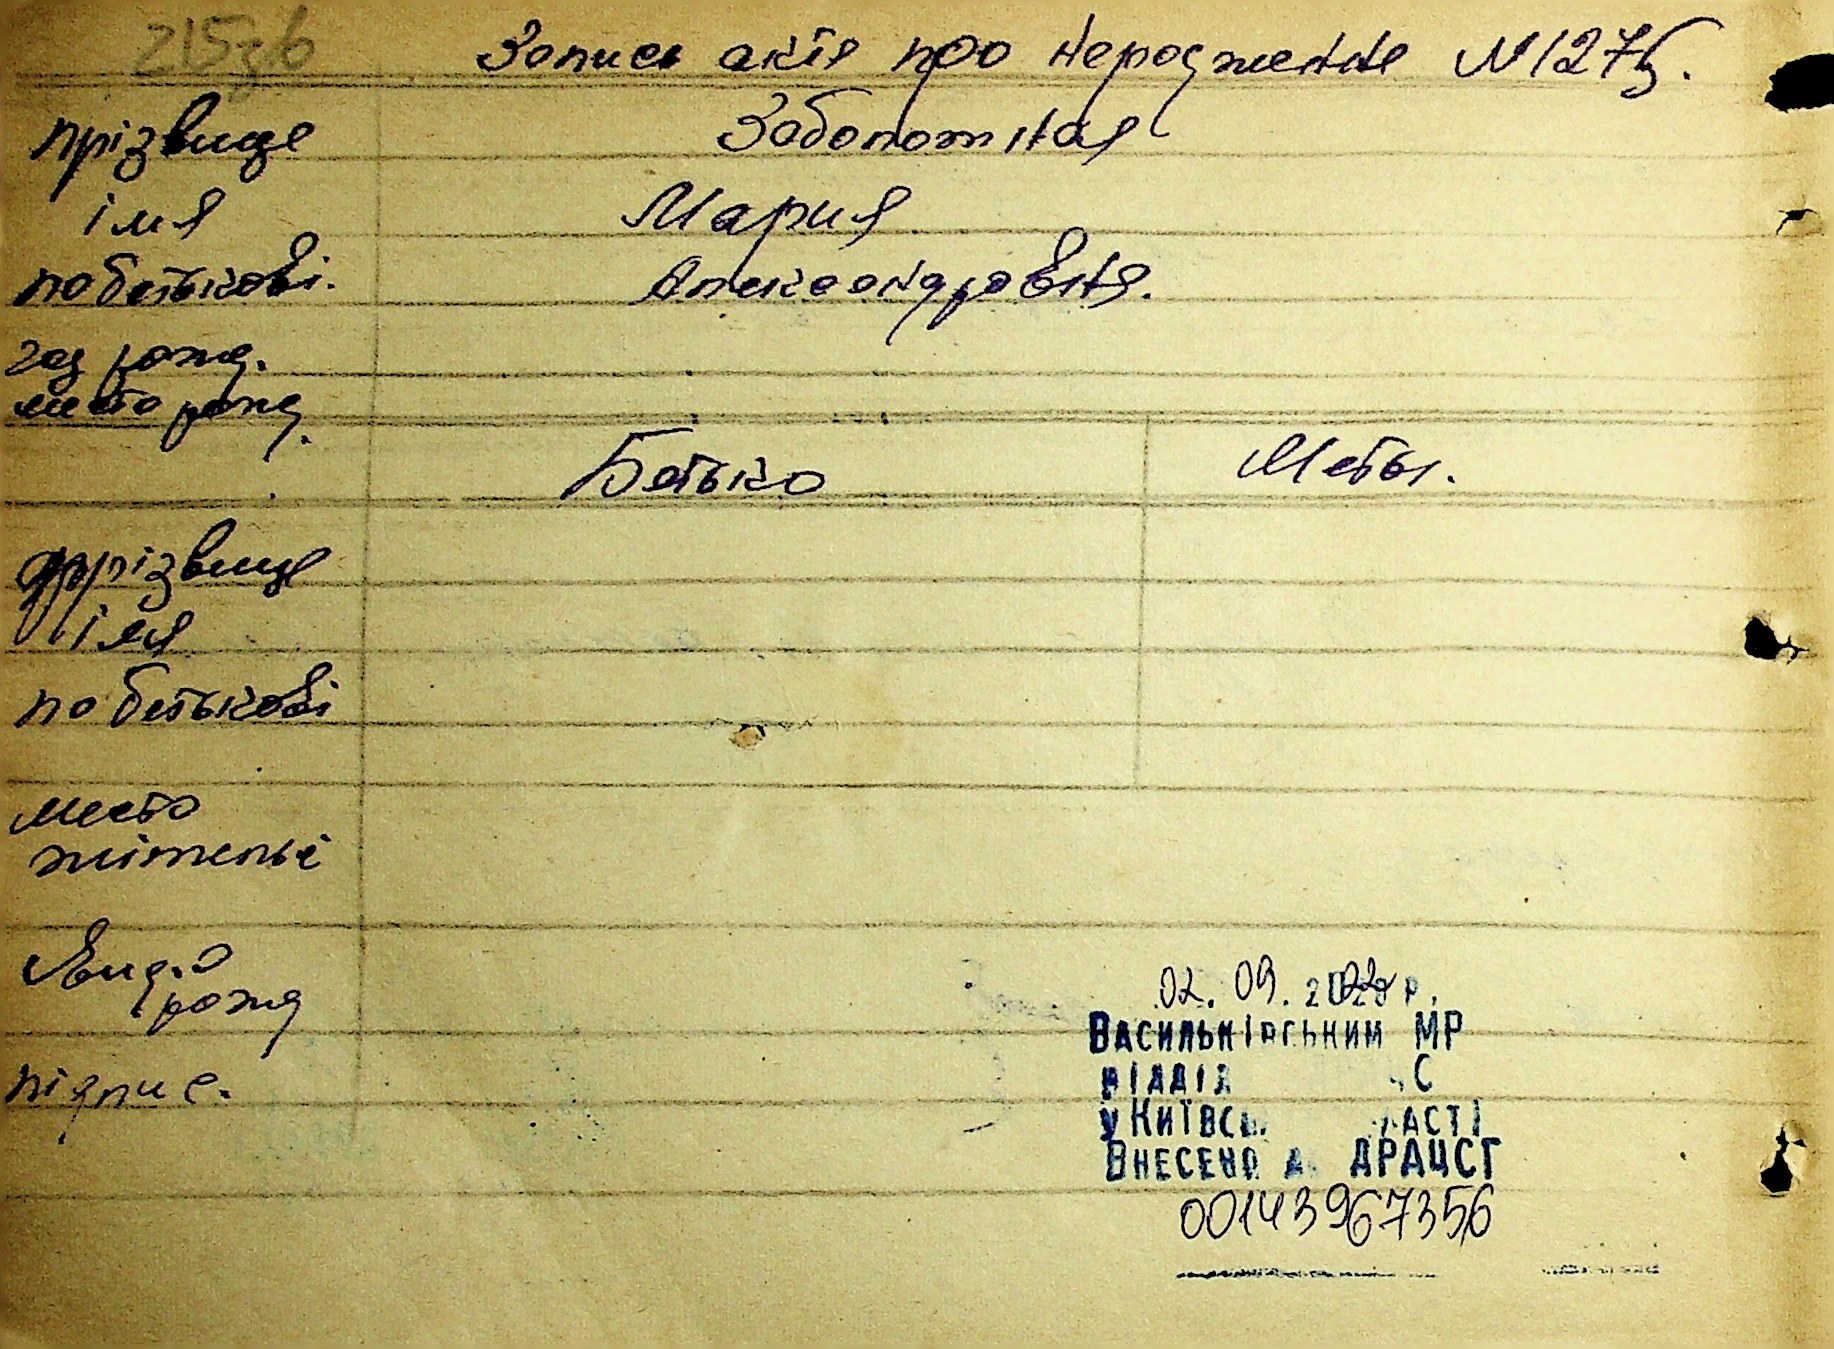 215зв
Запись актя про неродження №127б.
прізвище Заболотная
імя Мария
по батькові. Александровня.
год рожд.
место рожд.
Батько Мать.
прізвище
імя
по батькові
место
жітельі
рожд
підпис.
02. 09. 2022 р.
Васильківським МР
відділ С
у Київсь ласті
Внесено д ДРАЦСГ
00143967356